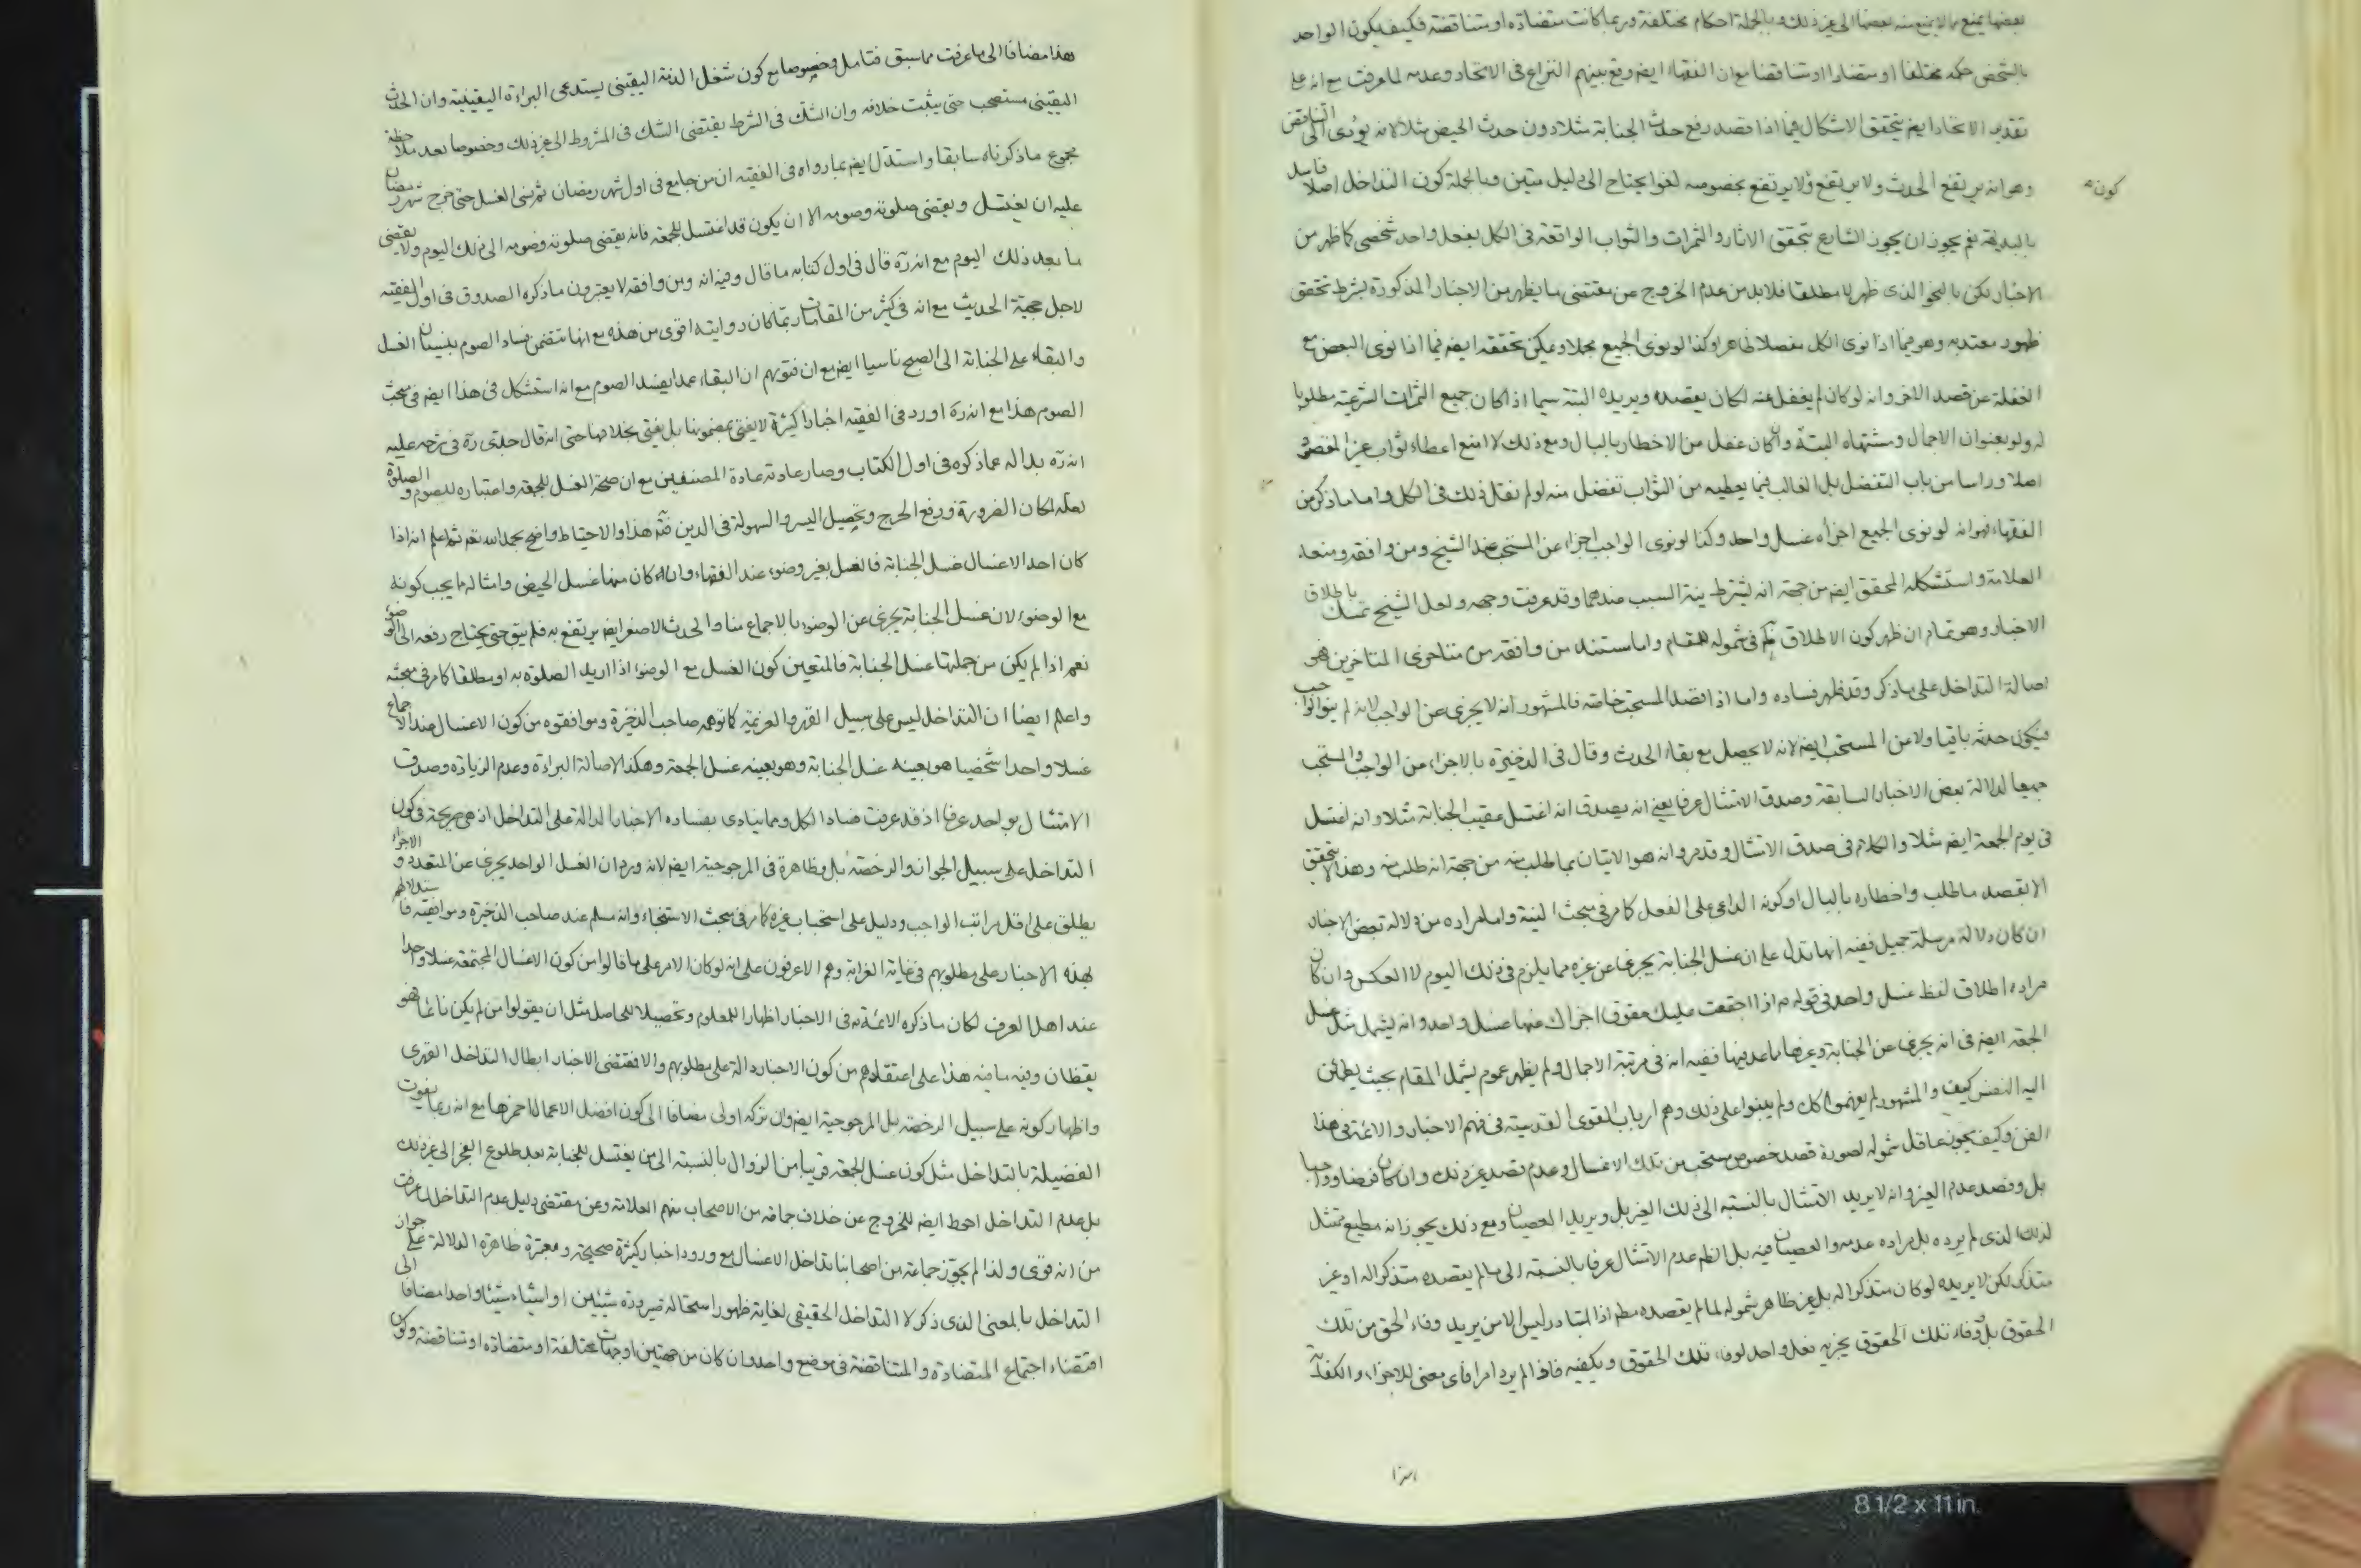 بعضها يمنع مالا يمنع منه بعضها الى غير ذلك وبالجملة احكام مختلفة وربما كانت متضادة او متناقضة فكيف يكون الواحد
بالشخص حكمه مختلفا او متضادا او متناقضا مع ان الفقهاء ايضا وقع بينهم النزاع فى الاتحاد وعدمه لما عرفت مع انه على
تقدير الاتحاد ايضا يتحقق الاشكال فيما اذا قصد رفع حدث الجنابة مثلا دون حدث الحيض مثلا لانه يؤدى الى التناقض
وهو انه يرتفع الحدث ولا يرتفع ولا يرتفع بخصوصه لغو يحتاج الى دليل متين وبالجملة كون التداخل اصلا فاسد
كون
بالبديهة نعم يجوز ان يجوز الشارع بتحقق الاثار والثمرات والثواب الواقعة فى الكل بفعل واحد شخصى كما ظهر من
الاخبار لكن بالنحو الذى ظهر لا مطلقا فلابد من عدم الخروج عن مقتضى ما يظهر من الاخبار المذكورة بشرط تحقق
ظهور معتد به وهو فيما اذا نوى الكل مفصلا ظاهر وكذا لو نوى الجميع مجملا ويمكن تحققه ايضا فيما اذا نوى البعض مع
الغفلة عن قصد الاخر وانه لو كان لم يغفل عنه لكان يقصده ويريده البتة سيما اذا كان جميع الثمرات الشرعية مطلوبا
له ولو بعنوان الاجمال ومشتهاه البتة وان كان غفل من الاخطار بالبال ومع ذلك لا امنع اعطاء ثواب غير المقصود
اصلا وراسا من باب التفضل بل الغالب فيما يعطيه من الثواب تفضل منه لو لم نقل ذلك فى الكل واما ما ذكر من
الفقهاء فهو انه لو نوى الجميع اجزأه غسل واحد وكذا لو نوى الواجب اجزأ عن المستحب عند الشيخ ومن وافقه ومنعه
العلامة واستشكله المحقق ايضا من جهة انه يشترط نية السبب عندهما وقد عرفت وجهه ولعل الشيخ تمسك باطلاق
الاخبار وهو تمام ان ظهر كون الاطلاق فى شموله للمقام واما مستند من وافقه من متاخرى المتاخرين هو
اصالة التداخل على ما ذكر وقد ظهر فساده واما اذا قصد المستحب خاصة فالمشهور انه لا يجزى عن الواجب لانه لم ينو الواجب
فيكون حدثه باقيا ولا عن المستحب ايضا لانه لا يحصل مع بقاء الحدث وقال فى الذخيرة بالاجزاء من الواجب والمستحب
جميعا لدلالة بعض الاخبار السابقة وصدق الامتثال عرفا يعنى انه يصدق انه اغتسل عقيب الجنابة مثلا وانه اغتسل
فى يوم الجمعة ايضا مثلا والكلام فى صدق الامتثال وقد مر وانه هو الاتيان بما طلب منه من جهة انه طلب منه وهذا لا يتحقق
الا بقصد ما طلب واخطاره بالبال او كونه الداعى على الفعل كما مر فى مبحث النية واما مراده من دلالة بعض الاخبار
ان كان دلالة مرسلة جميل ففيه انها تدل على ان غسل الجنابة يجزى عن غيره مما يلزم فى ذلك اليوم لا العكس وان كان
مراده اطلاق لفظ غسل واحد فى قوله ع اذا اجتمعت عليك حقوق اجزاك عنها غسل واحد وانه يشمل مثل غسل
الجمعة ايضا فى انه يجزى عن الجنابة وغيرها ما عدا نيتها ففيه انه فى مرتبة الاجمال ولم يظهر عموم يشمل المقام بحيث يطمئن
اليه النفس كيف والمشهور لم يفهموا كل ولم يبنوا على ذلك وهم ارباب القوى القدسية فى فهم الاخبار والائمة فى هذا
الفن وكيف يجوز عاقل شموله لصورة قصد خصوص مستحب من تلك الاغسال وعدم قصد غير ذلك وان كان فرضا وواجبا
بل وقصد عدم الغير وانه لا يريد الامتثال بالنسبة الى ذلك الغير بل ويريد العصيان ومع ذلك يجوز انه مطيع ممتثل
لذلك الذى لم يرده بل مراده عدمه والعصيان فيه بل الظم عدم الامتثال عرفا بالنسبة الى ما لم يقصده متذكرا له او غير
متذكر لكن لا يريده لو كان متذكرا له بل غير ظاهر شموله لما لم يقصده مطم اذ المتبادر ليس الا من يريد وفاء الحق من تلك
الحقوق بل وفاء تلك الحقوق يجزيه فعل واحد لوفاء تلك الحقوق ويكفيه فاذا لم يرد امرا فاى معنى للاجزاء والكفاية
هذا مضافا الى ما عرفت مما سبق فتامل وخصوصا مع كون شغل الذمة اليقينى يستدعى البراءة اليقينية وان الحدث
اليقينى مستصحب حتى يثبت خلافه وان الشك فى الشرط يقتضى الشك فى المشروط الى غير ذلك وخصوصا بعد ملاحظة
مجموع ما ذكرناه سابقا واستدل ايضا بما رواه فى الفقيه ان من جامع فى اول شهر رمضان ثم نسى الغسل حتى خرج شهر رمضان
عليه ان يغتسل ويقضى صلوته وصومه الا ان يكون قد اغتسل للجمعة فانه يقضى صلوته وصومه الى ذلك اليوم ولا يقضى
ما بعد ذلك اليوم مع انه ره قال فى اول كتابه ما قال وفيه انه ومن وافقه لا يعتبرون ما ذكره الصدوق فى اول الفقيه
لاجل حجية الحديث مع انه فى كثير من المقامات ربما كان روايته اقوى من هذه مع انها تتضمن فساد الصوم بنسيان الغسل
والبقاء على الجنابة الى الصبح ناسيا ايضا مع ان فتويهم ان البقاء عمدا يفسد الصوم مع انه استشكل فى هذا ايضا فى مبحث
الصوم هذا مع انه ره اورد فى الفقيه اخبارا كثيرة لا يفتى بمضمونها بل يفتى بخلافها حتى انه قال جدى ره فى شرحه عليه
انه ره بدا له عما ذكره فى اول الكتاب وصار عادته عادة المصنفين مع ان صحة الغسل للجمعة واعتباره للصوم والصلوة
لعله لمكان الضرورة ورفع الحرج وتحصيل اليسر والسهولة فى الدين فتم هذا والاحتياط واضح بحمد الله تعم ثم اعلم انه اذا
كان احد الاغسال غسل الجنابة فالغسل بغير وضوء عند الفقهاء وان كان منها غسل الحيض وامثاله مما يجب كونه
مع الوضوء لان غسل الجنابة يجزى عن الوضوء بالاجماع منا والحدث الاصغر ايضا يرتفع به فلم يبق حتى يحتاج رفعه الى الوضوء
نعم اذا لم يكن من جملتها غسل الجنابة فالمتعين كون الغسل مع الوضوء اذا اريد الصلوة به او مطلقا كما مر فى مبحثه
واعلم ايضا ان التداخل ليس على سبيل القهر والعزيمة كما توهمه صاحب الذخيرة وموافقوه من كون الاغسال عند الاجماع
غسلا واحدا شخصيا هو بعينه غسل الجنابة وهو بعينه غسل الجمعة وهكذا لاصالة البراءة وعدم الزيادة وصدق
الامتثال بواحد عرفا اذ قد عرفت فساد الكل ومما ينادى بفساده الاخبار الدالة على التداخل اذ هى صريحة فى كون
التداخل على سبيل الجواز والرخصة بل وظاهرة فى المرجوحية ايضا لانه ورد ان الغسل الواحد يجزى عن المتعدد والاجزاء
يطلق على اقل مراتب الواجب ودليل على استحباب غيره كما مر فى مبحث الاستنجاء وانه مسلم عند صاحب الذخيرة وموافقيه فاستدلالهم
بهذه الاخبار على مطلوبهم فى غاية الغرابة وهم الاعرفون على انه لو كان الامر على ما قالوا من كون الاغسال المجتمعة غسلا واحدا
عند اهل العرف لكان ما ذكره الائمة ع فى الاخبار اظهارا للمعلوم وتحصيلا للحاصل مثل ان يقولوا من لم يكن نائما هو
يقظان وفيه ما فيه هذا على اعتقادهم من كون الاخبار دالة على مطلوبهم والا فمقتضى الاخبار ابطال التداخل القهرى
واظهار كونه على سبيل الرخصة بل المرجوحية ايضا وان تركه اولى مضافا الى كون افضل الاعمال احمزها مع انه ربما يفوت
الفضيلة بالتداخل مثل كون غسل الجمعة قريبا من الزوال بالنسبة الى من يغتسل للجنابة بعد طلوع الفجر الى غير ذلك
بل عدم التداخل احوط ايضا للخروج عن خلاف جماعة من الاصحاب منهم العلامة وعن مقتضى دليل عدم التداخل لما عرفت
من انه قوى ولذا لم يجوز جماعة من اصحابنا تداخل الاغسال مع ورود اخبار كثيرة صحيحة ومعتبرة ظاهرة الدلالة على جواز
التداخل بالمعنى الذى ذكر لا التداخل الحقيقى لغاية ظهور استحالة صيرورة شيئين او اشياء شيئا واحدا مضافا الى
اقتضاء اجتماع المتضادة والمتناقضة فى موضع واحد وان كان من جهتين او جهات مختلفة او متضادة او متناقضة وكون
8 1/2 x 11 in.